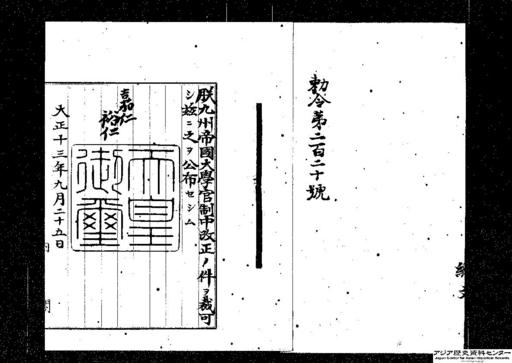 勅令第二百二十號
朕九州帝國大學官制中改正ノ件ヲ裁可
シ茲ニ之ヲ公布セシム
嘉仁
裕仁
天皇御璽
大正十三年九月二十五日
内閣
アジア歴史資料センター
Japan Center for Asian Historical Records